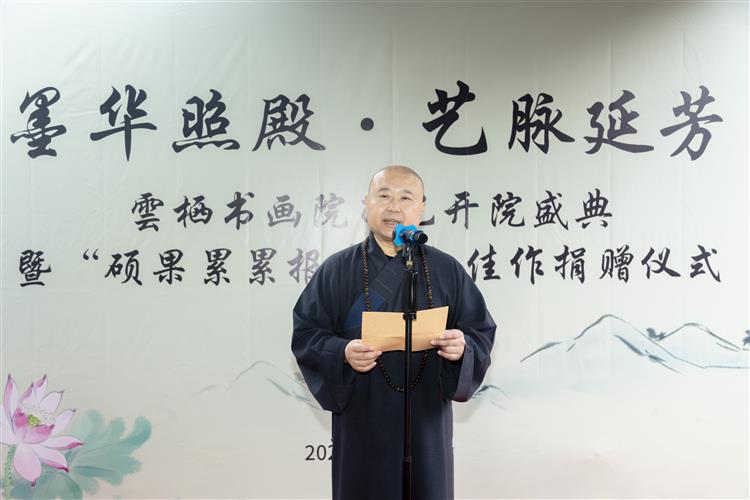 墨华照殿·艺脉延芳
雲栖书画院 开院盛典
暨“硕果累累报 佳作捐赠仪式
202